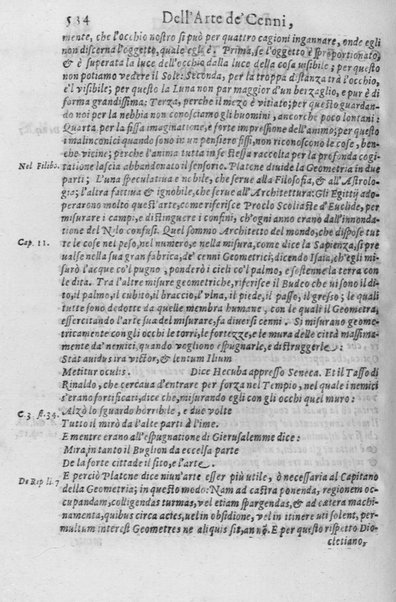 534 Dell'Arte de' Cenni,
mente, che l'occhio nostro si può per quattro cagioni ingannare, onde egli
non discerna l'oggetto, quale egli è. Prima, se l'oggetto è sproportionato,
& è superata la luce dell'occhio dalla luce della cosa visibile; per questo
non potiamo vedere il Sole: Seconda, per la troppa distanza trà l'occhio,
e'l visibile; per questo la Luna non par maggior d'un berzaglio, e pur è di
forma grandissima; Terza, perche il mezo è vitiato; per questo guardan-
do noi per la nebbia non conosciamo gli huomini, ancorche poco lontani:
Quarta per la fissa imaginatione, e forte impressione dell'animo; per questo
i malinconici quando sono in un pensiero fissi, non riconoscono le cose, ben-
che vicine; perche l'anima tutta in se stessa raccolta per la profonda cogi-
Nel Filibo. tatione lascia abbandonato il sensorio. Platone divide la Geometria in due
parti; L'una speculativa e nobile, che serve alla Filosofia, & all'Astrolo-
gia; l'altra fattiva & ignobile, che serve all'Architettura: Gli Egittij ado-
perarono molto quest'arte, como riferisce Proclo Scoliaste d'Euclide, per
misurare i campi, e distinguere i confini, ch'ogni anno erano dall'innonda-
tione del Nilo confusi. Quel sommo Architecto del mondo, che dispose tut
Cap. 11. te le cose nel peso, nel numero, e nella misura, come dice la Sapienza, si pre
valse nella sua gran fabrica, de' cenni Geometrici; dicendo Isaia, ch'egli mi-
surò l'acque co'l pugno, ponderò i cieli co'l palmo, e sostenne la terra con
le dita. Tra l'altre misure geometriche, riferisce il Budeo che vi sono il di-
to, il palmo, il cubito, il braccio, l'vlna, il piede, il passo, il gresso; le quali
tutte sono dedotte da quelle membra humane, con le quali il Geometra,
essercitando l'arte sua del misurare, fa diversi cenni. Si misurano geome-
tricamente con gli occhi le torri, le fortezze, e le mura delle città massima-
mente da' nemici, quando vogliono espugnarle, e distruggerle:
Stat auidus ira victor, & lentum Ilium
Metitur oculis. Dice Hecuba appresso Seneca. Et il Tasso di
Rinaldo, che cercaua d'entrare per forza nel Tempio, nel quale i nemici
s'erano fortificati, dice che, misurando egli con gli occhi quel muro:
C. 3. st. 34. Alzò lo sguardo horribile, e due volte
Tutto il mirò da l'alte parti à l'ime.
E mentre erano all'espugnatione di Gierusalemme dice:
Mira, in tanto il Buglion da eccelsa parte
De la forte cittade il sito, e l'arte.
De Rep li. 7 E perciò Platone dice niun'arte esser più utile, ò necessaria al Capitano
della Geometria; in questo modo: Nam ad castra ponenda, regionem oc-
cupandam, colligendas turmas, vel etiam spargendas, & ad catera machi-
namenta, quibus circa acies, uel in obsidione, vel in itinere uti solent, per-
multum interest Geometres ne aliquis sit, an nō. E per questo rispetto Dio-
cletiano,